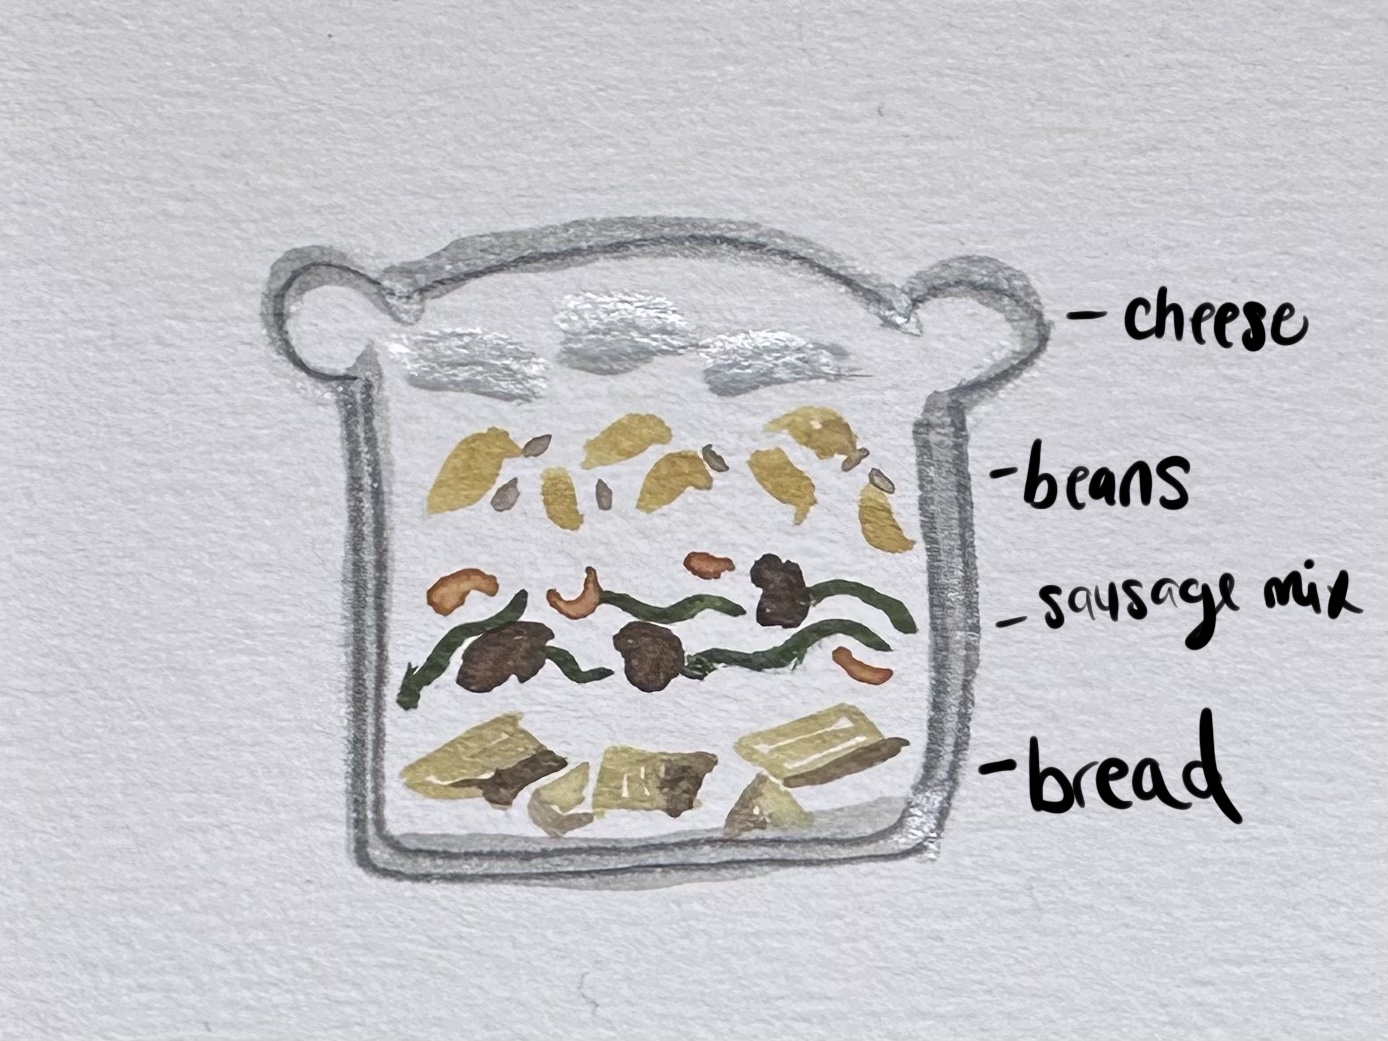 - cheese
- beans
- sausage mix
- bread